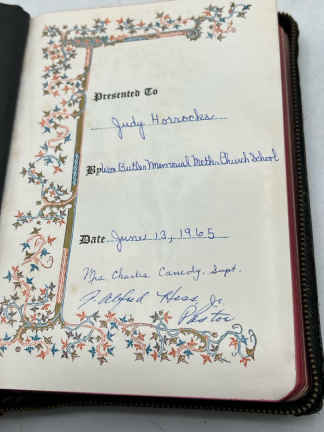 Presented To
Judy Horrocks
By Butler Memorial Meth. Church School
Date June 13, 1965
Mrs. Charles Canedy, Supt.
F. Alfred Hess, Jr.
Pastor